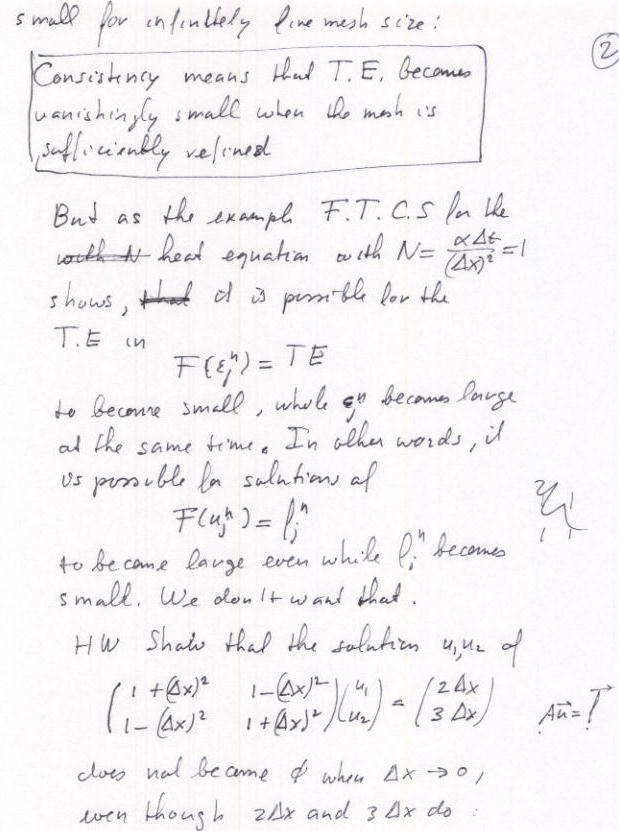 small for infinitely fine mesh size:
2
Consistency means that T.E. becomes
vanishingly small when the mesh is
sufficiently refined
But as the example F.T.C.S for the
with N heat equation with N = αΔt/(Δx)² = 1
shows, that it is possible for the
T.E in
F(εⱼⁿ) = TE
to become small, while εⱼⁿ becomes large
at the same time. In other words, it
is possible for solutions of
F(uⱼⁿ) = fⱼⁿ
to become large even while fⱼⁿ becomes
small. We don't want that.
HW Show that the solution u₁,u₂ of
(1+(Δx)² 1-(Δx)²) (u₁) = (2Δx)
(1-(Δx)² 1+(Δx)²) (u₂) (3Δx) Au⃗ = f⃗
does not become φ when Δx → 0,
even though 2Δx and 3Δx do :